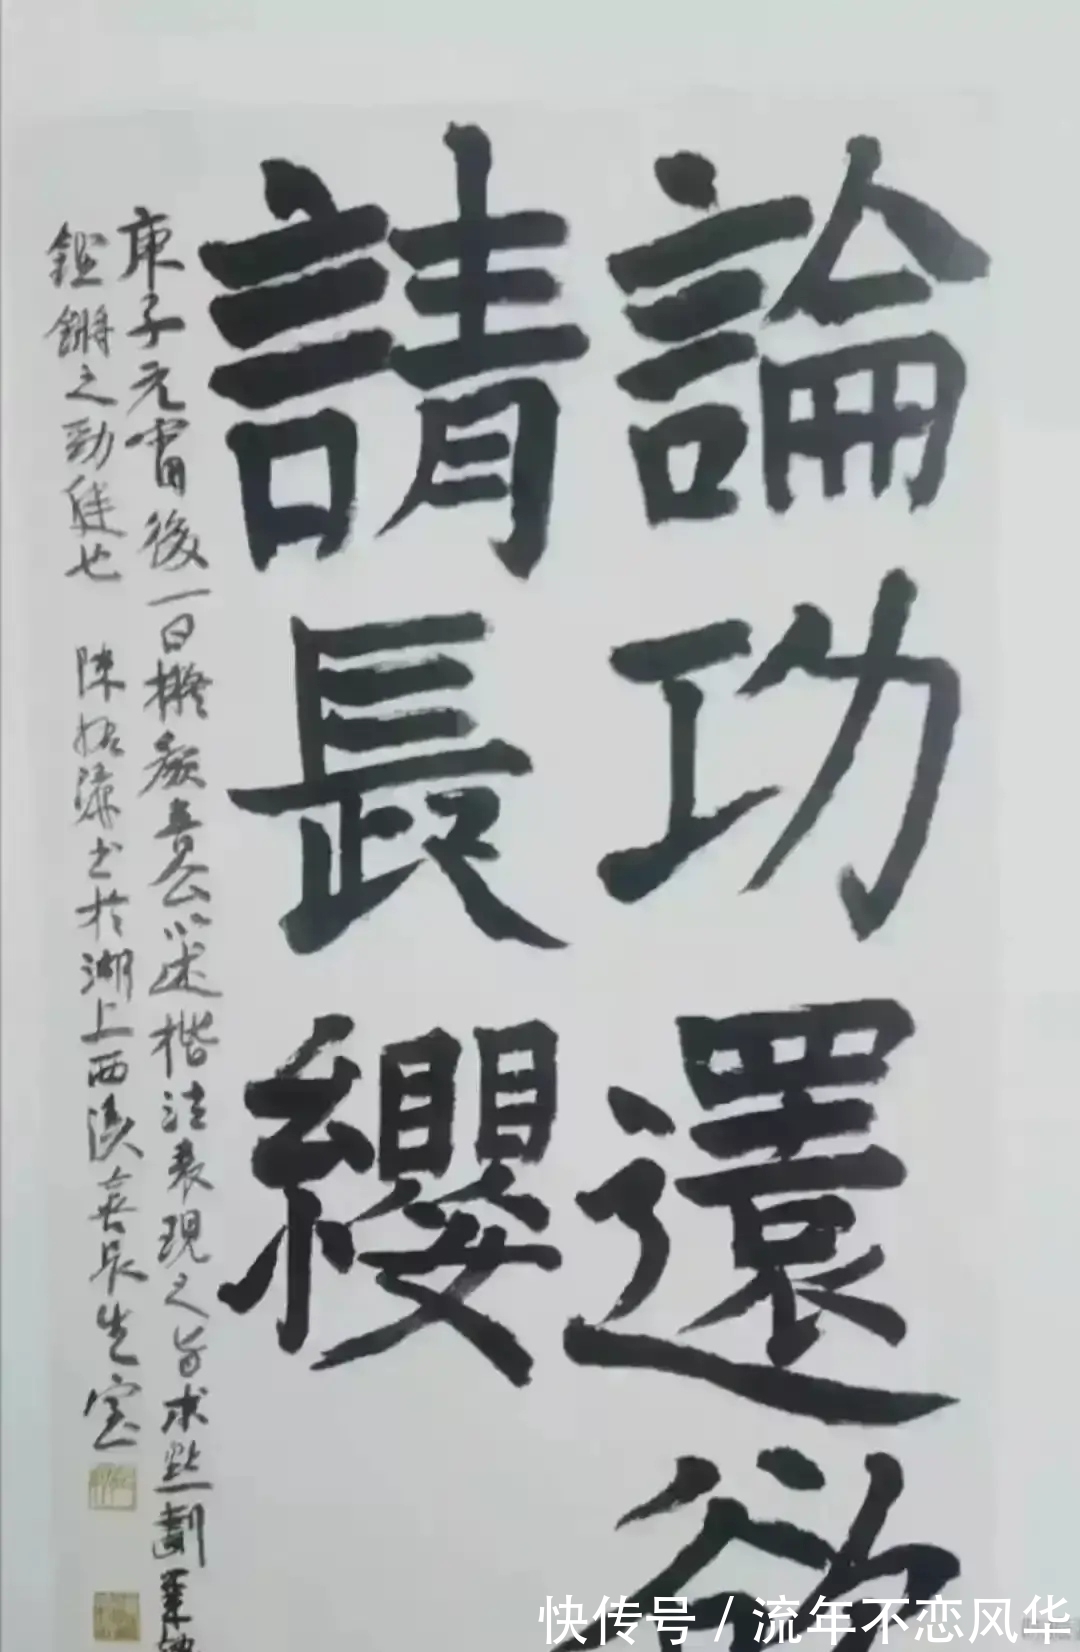 論功還欲
請長纓
庚子元宵後一日擬顏魯公以述楷法表現之旨求點劃畢
鏗鏘之勁健也 陳振濂書於湖上西溪喜長生室
快传号 / 流年不恋风华